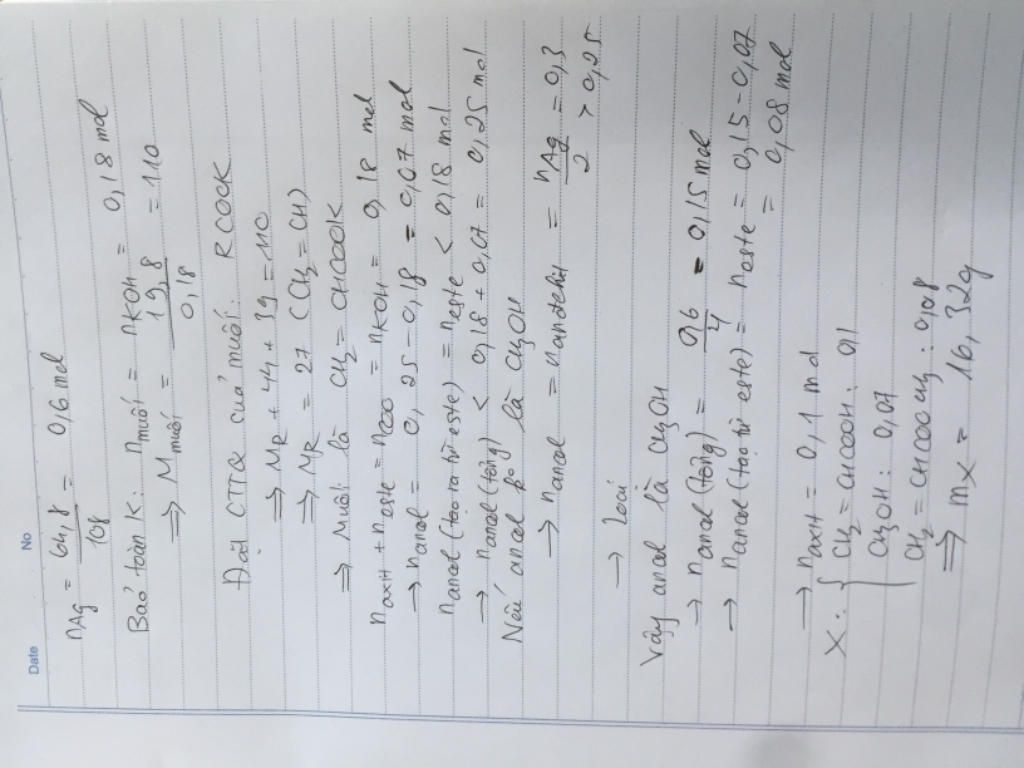 Date No
nAg = 64,8/108 = 0,6 mol
Bảo toàn K: nmuối = nKOH = 0,18 mol
⇒ Mmuối = 19,8/0,18 = 110
Đặt CTTQ của muối: RCOOK
⇒ MR + 44 + 39 = 110
⇒ MR = 27 (CH2=CH)
⇒ Muối là CH2=CHCOOK
naxH + neste = nCOO = nKOH = 0,18 mol
→ nancol = 0,25 - 0,18 = 0,07 mol
nancol (tạo ra từ este) = neste < 0,18 mol
→ nancol (tổng) < 0,18 + 0,07 = 0,25 mol
Nếu ancol ko là CH3OH
→ nancol = nandehit = nAg/2 = 0,3 > 0,25
→ Loại
Vậy ancol là CH3OH
→ nancol (tổng) = 0,6/4 = 0,15 mol
→ nancol (tạo từ este) = neste = 0,15 - 0,07
= 0,08 mol
→ naxH = 0,1 mol
X: { CH2=CHCOOH: 0,1
CH3OH: 0,07
CH2=CHCOOCH3: 0,08
⇒ mX = 16,32g